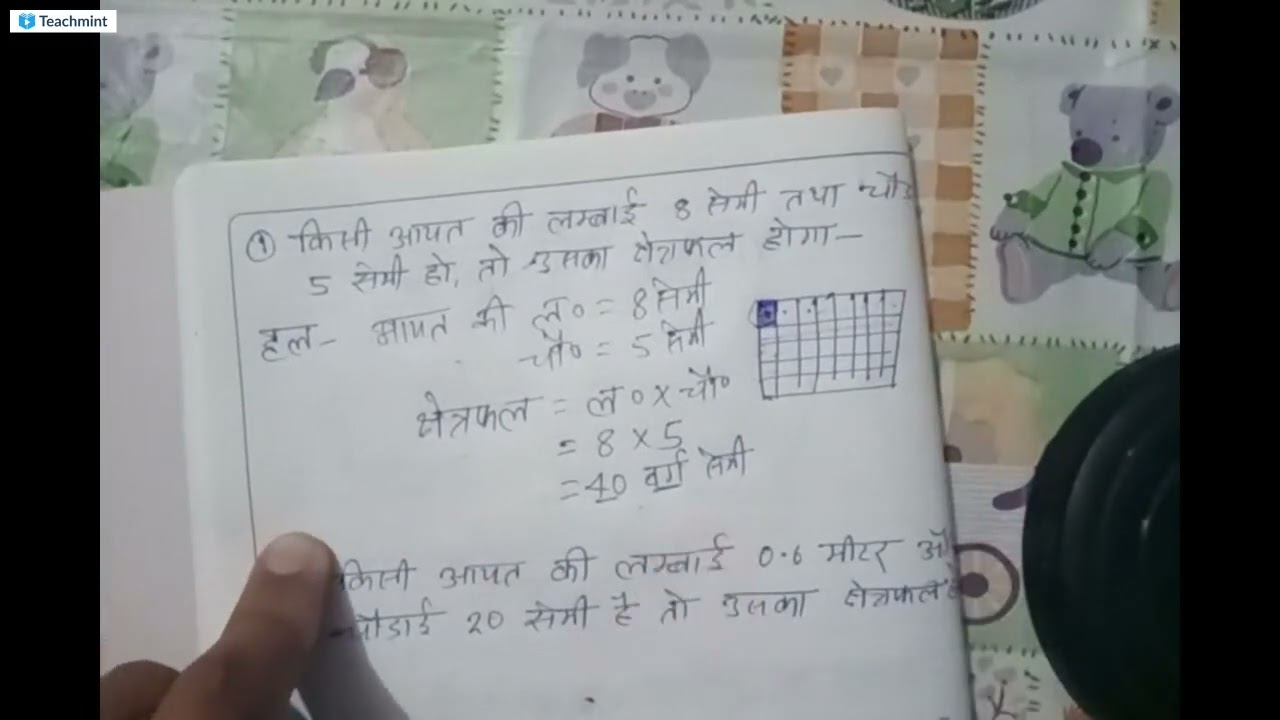 Teachmint
① किसी आयत की लम्बाई 8 सेमी तथा
5 सेमी हो, तो उसका क्षेत्रफल होगा—
हल— आयत की ल० = 8 सेमी
चौ० = 5 सेमी
क्षेत्रफल = ल० x चौ०
= 8 x 5
= 40 वर्ग सेमी
किसी आयत की लम्बाई 0.6 मीटर
चौडाई 20 सेमी है तो उसका क्षेत्रफल